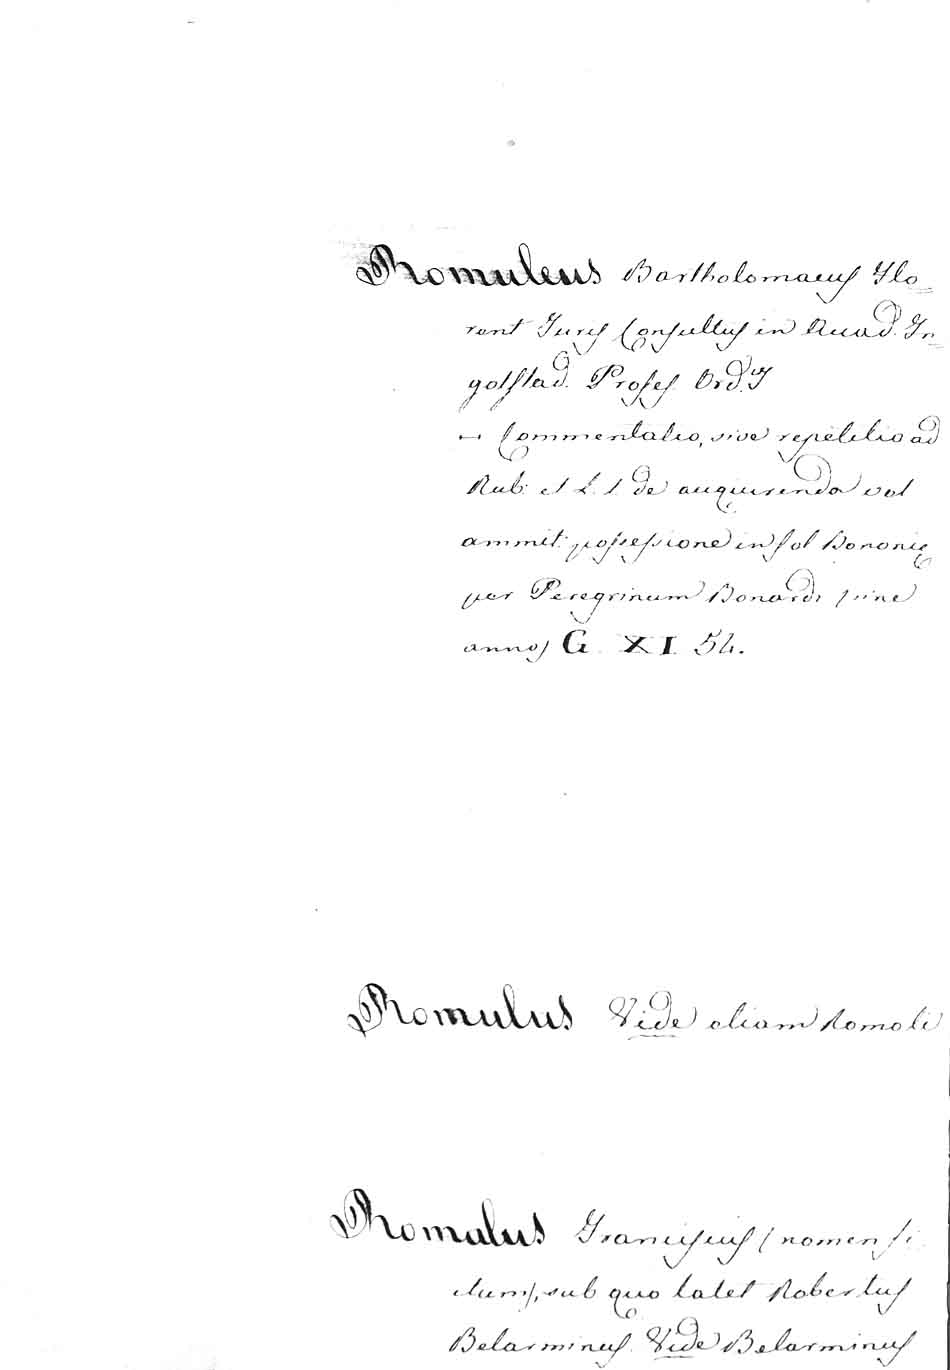 Romuleus Bartholomaeus Flo-
rent Juris Consultus in Acad. In-
golstad. Profes. Ord.us
— Commentatio, sive repetitio ad
Rub: et L. 1. de acquirenda vel
ammit: possessione in fol Bononię
per Peregrinum Bonardi (sine
anno) G. XI. 54.
Romulus Vide etiam Romoli
Romulus Franciscus (nomen fi-
ctum), sub quo latet Robertus
Belarminus. Vide Belarminus